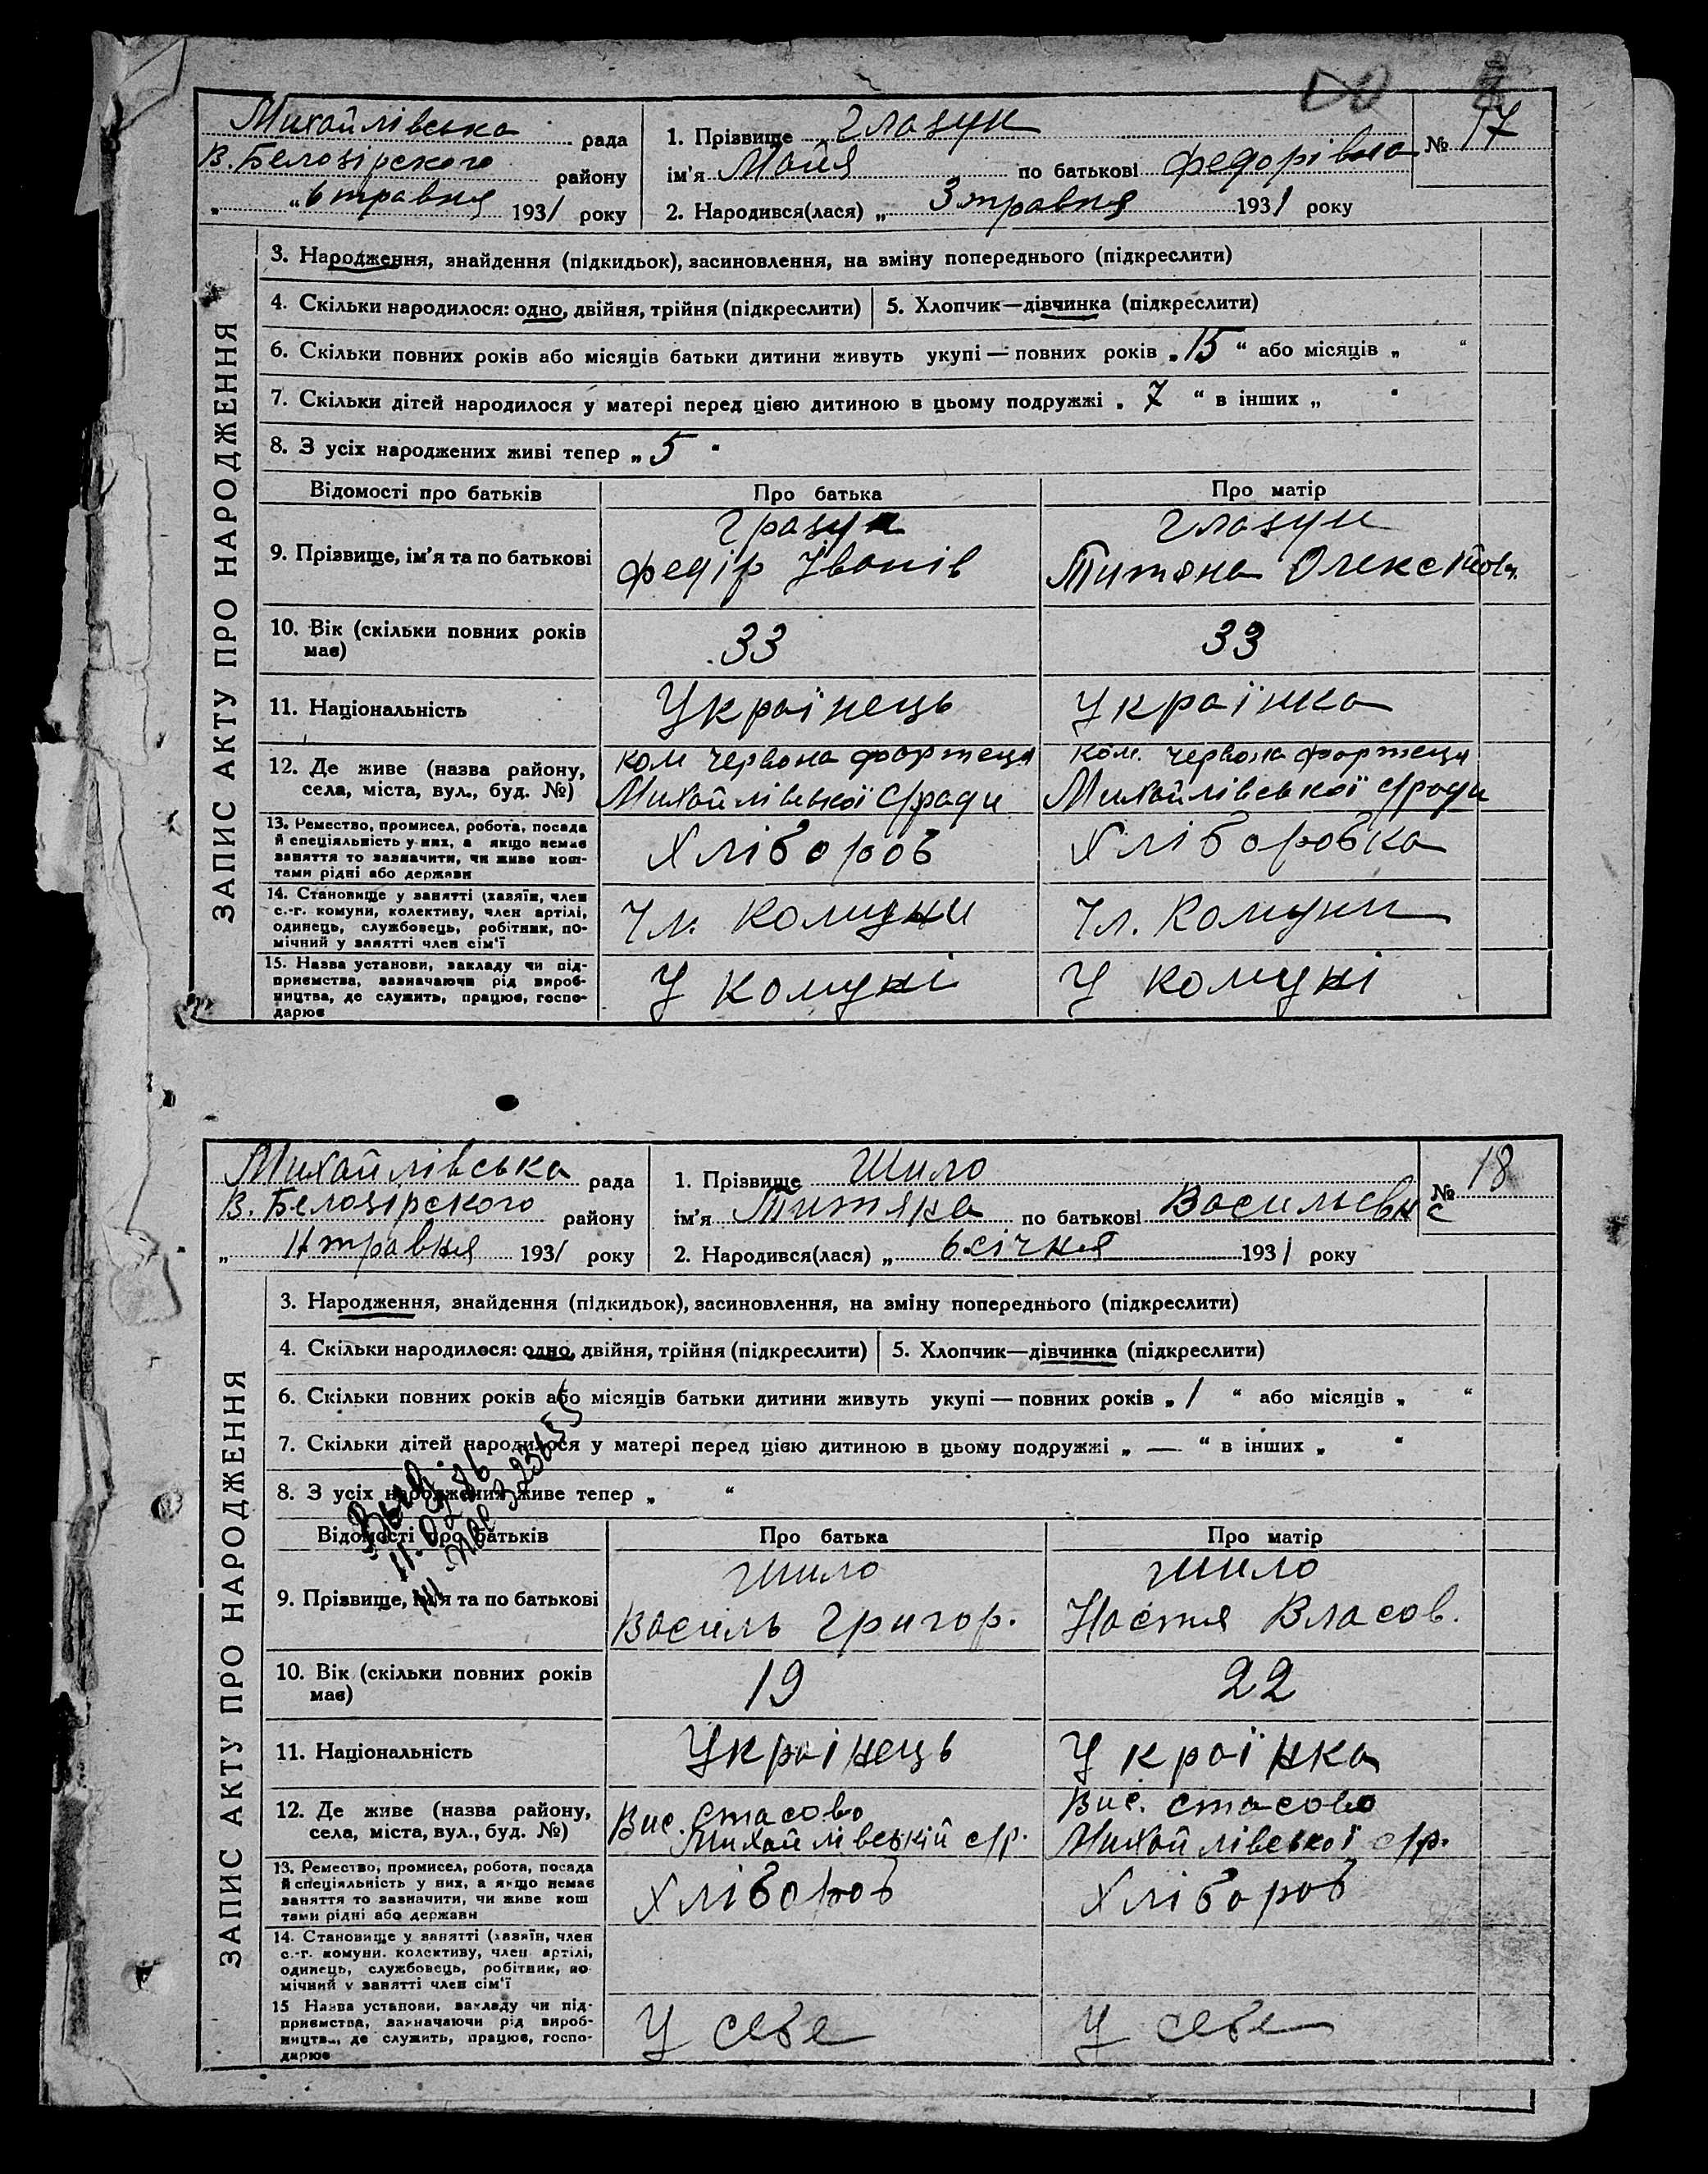 Михайлівська рада
В. Белозірского району
„ “ 6 травня 1931 року
1. Прізвище Глазун
ім'я Майя по батькові Федорівна
2. Народився(лася) „ 3 травня 1931 року
№ 17
ЗАПИС АКТУ ПРО НАРОДЖЕННЯ
3. Народження, знайдення (підкидьок), засиновлення, на зміну попереднього (підкреслити)
4. Скільки народилося: одно, двійня, трійня (підкреслити) 5. Хлопчик—дівчинка (підкреслити)
6. Скільки повних років або місяців батьки дитини живуть укупі — повних років „ 15 “ або місяців „ “
7. Скільки дітей народилося у матері перед цією дитиною в цьому подружжі „ 7 “ в інших „ “
8. З усіх народжених живі тепер „ 5 “
Відомості про батьків Про батька Про матір
9. Прізвище, ім'я та по батькові
Глазун
Федір Іванів
Глазун
Титяна Олексійовн.
10. Вік (скільки повних років
має)
33 33
11. Національність Українець Українка
12. Де живе (назва району,
села, міста, вул., буд. №)
ком червона фортеця
Михайлівської с/ради
ком. червона фортеця
Михайлівської с/ради
13. Ремество, промисел, робота, посада
й спеціяльність у них, а якщо немає
заняття то зазначити, чи живе кош-
тами рідні або держави
Хлібороб Хлібороба
14. Становище у занятті (хазяїн, член
с.-г. комуни, колективу, член артілі,
одинець, службовець, робітник, по-
мічний у занятті член сім'ї
Чл. Комуни Чл. Комуни
15. Назва установи, закладу чи під-
приємства, зазначаючи рід вироб-
ництва, де служить, працює, госпо-
дарює
У комуні У комуні
Михайлівська рада
В. Белозірского району
„ 11 травня 1931 року
1. Прізвище Шило
ім'я Титяна по батькові Васильєвн
2. Народився(лася) „ 6 січня 1931 року
№ 18
ЗАПИС АКТУ ПРО НАРОДЖЕННЯ
3. Народження, знайдення (підкидьок), засиновлення, на зміну попереднього (підкреслити)
4. Скільки народилося: одно, двійня, трійня (підкреслити) 5. Хлопчик—дівчинка (підкреслити)
6. Скільки повних років або місяців батьки дитини живуть укупі — повних років „ 1 “ або місяців „ “
7. Скільки дітей народилося у матері перед цією дитиною в цьому подружжі „ — “ в інших „ “
8. З усіх народжених живе тепер „ “
Выд.
11.02.86
Відомості про батьків Про батька Про матір
9. Прізвище, ім'я та по батькові
Шило
Василь Григор.
Шило
Настя Власов.
10. Вік (скільки повних років
має)
19 22
11. Національність Українець Українка
12. Де живе (назва району,
села, міста, вул., буд. №)
Вис. Стасово
Михайлівській с/р.
Вис. Стасово
Михайлівської с/р.
13. Ремество, промисел, робота, посада
й спеціяльність у них, а якщо немає
заняття то зазначити, чи живе кош
тами рідні або держави
Хлібороб Хлібороб
14. Становище у занятті (хазяїн, член
с.-г. комуни. колективу, член артілі,
одинець, службовець, робітник, по
мічний у занятті член сім'ї
15 Назва установи, закладу чи під-
приємства, зазначаючи рід вироб-
ництва, де служить, працює, госпо-
дарює
У себе У себе